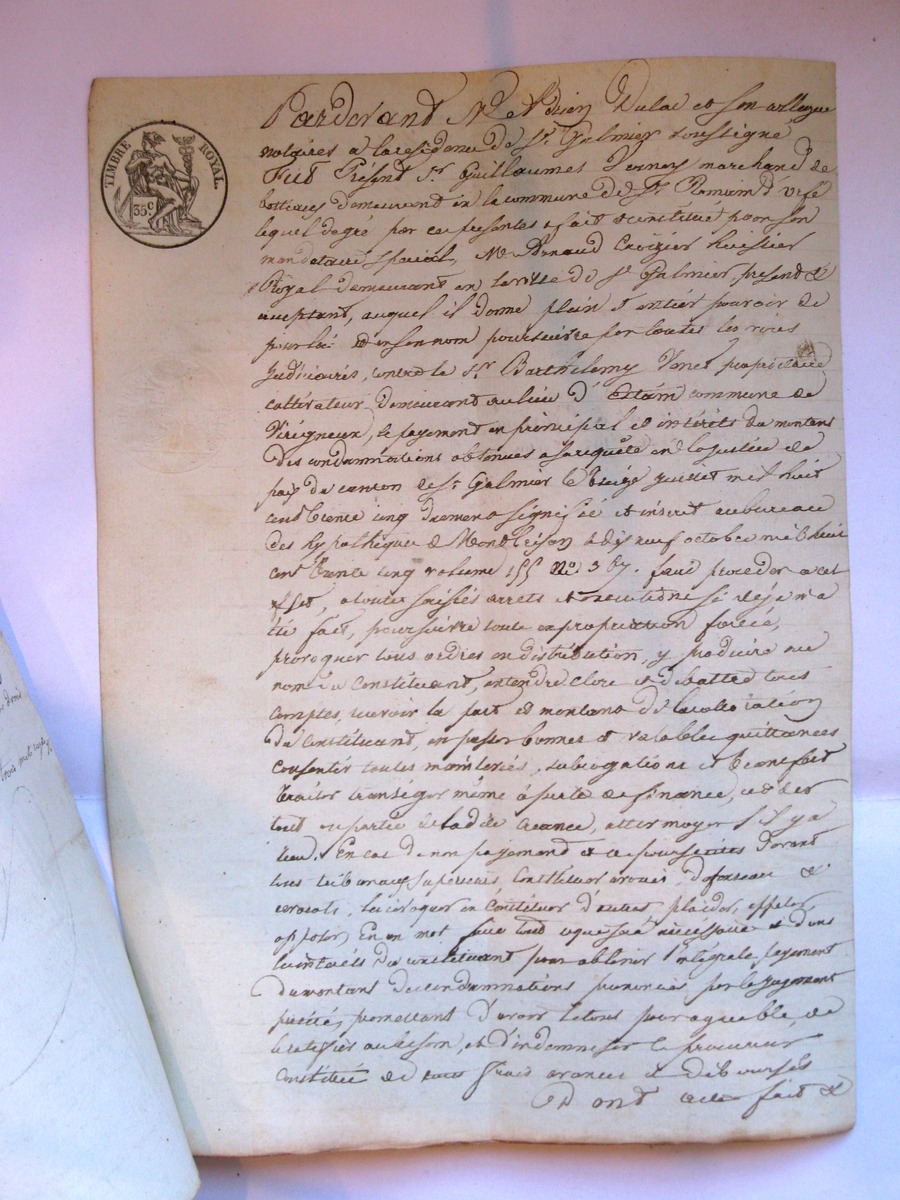 TIMBRE ROYAL.
35c
Pardevant Me Adrien Dulac et son collegue
notaires a la residence de St Galmier soussigné
Fut Présent Sr Guillaume marchand de
demeurant en la commune de St Romain
lequel de gré par ces presentes a fait et constitué pour son
mandataire spécial, Me Arnaud Croizier huissier
Royal demeurant en la ville de St Galmier, présent et
acceptant, auquel il donne plein et entier pouvoir de
pour lui et en son nom poursuivre par toutes les voies
judiciaires, contre le Sr Barthelemy propriétaire
cultivateur demeurant au lieu d' commune de
Virigneux, le payement en principal et intérêts du montant
des condamnations obtenues a sa requête en la justice de
paix du canton de St Galmier le treize juillet mil huit
cent trente cinq dument signifié et inscrit au bureau
des hypothèques de Montbrison le dix neuf octobre mil huit
cent trente cinq volume 155 No 367. faire proceder a cet
effet, a toutes saisies arrets et executions si deja n'a
été fait, poursuivre toute expropriation forcée,
provoquer tous ordres en distribution, y produire au
nom du Constituant, entendre clore et debattre tous
comptes, recevoir la part et montant de la collocation
du Constituant, en passer bonnes et valables quittances
consentir toutes mainlevées, subrogations et transfert
traiter transiger même à perte de finance, céder
tout ou partie de la dite creance, attermoyer s'il y a
lieu. En cas de non payement et de poursuites devant
tous tribunaux superieurs, Constituer avoués, defenseur et
avocats, les revoquer en constituer d'autres, plaider, appeler,
opposer, En un mot faire tout ce que sera nécessaire et dans
l'intérêt du constituant pour obtenir l'intégrale payement
du montant des condamnations prononcées par le jugement
précité, promettant d'avoir le tout pour agreable, de
le ratifier au besoin, et d'indemniser le procureur
Constitué de tous frais avances et déboursés
Dont acte fait et